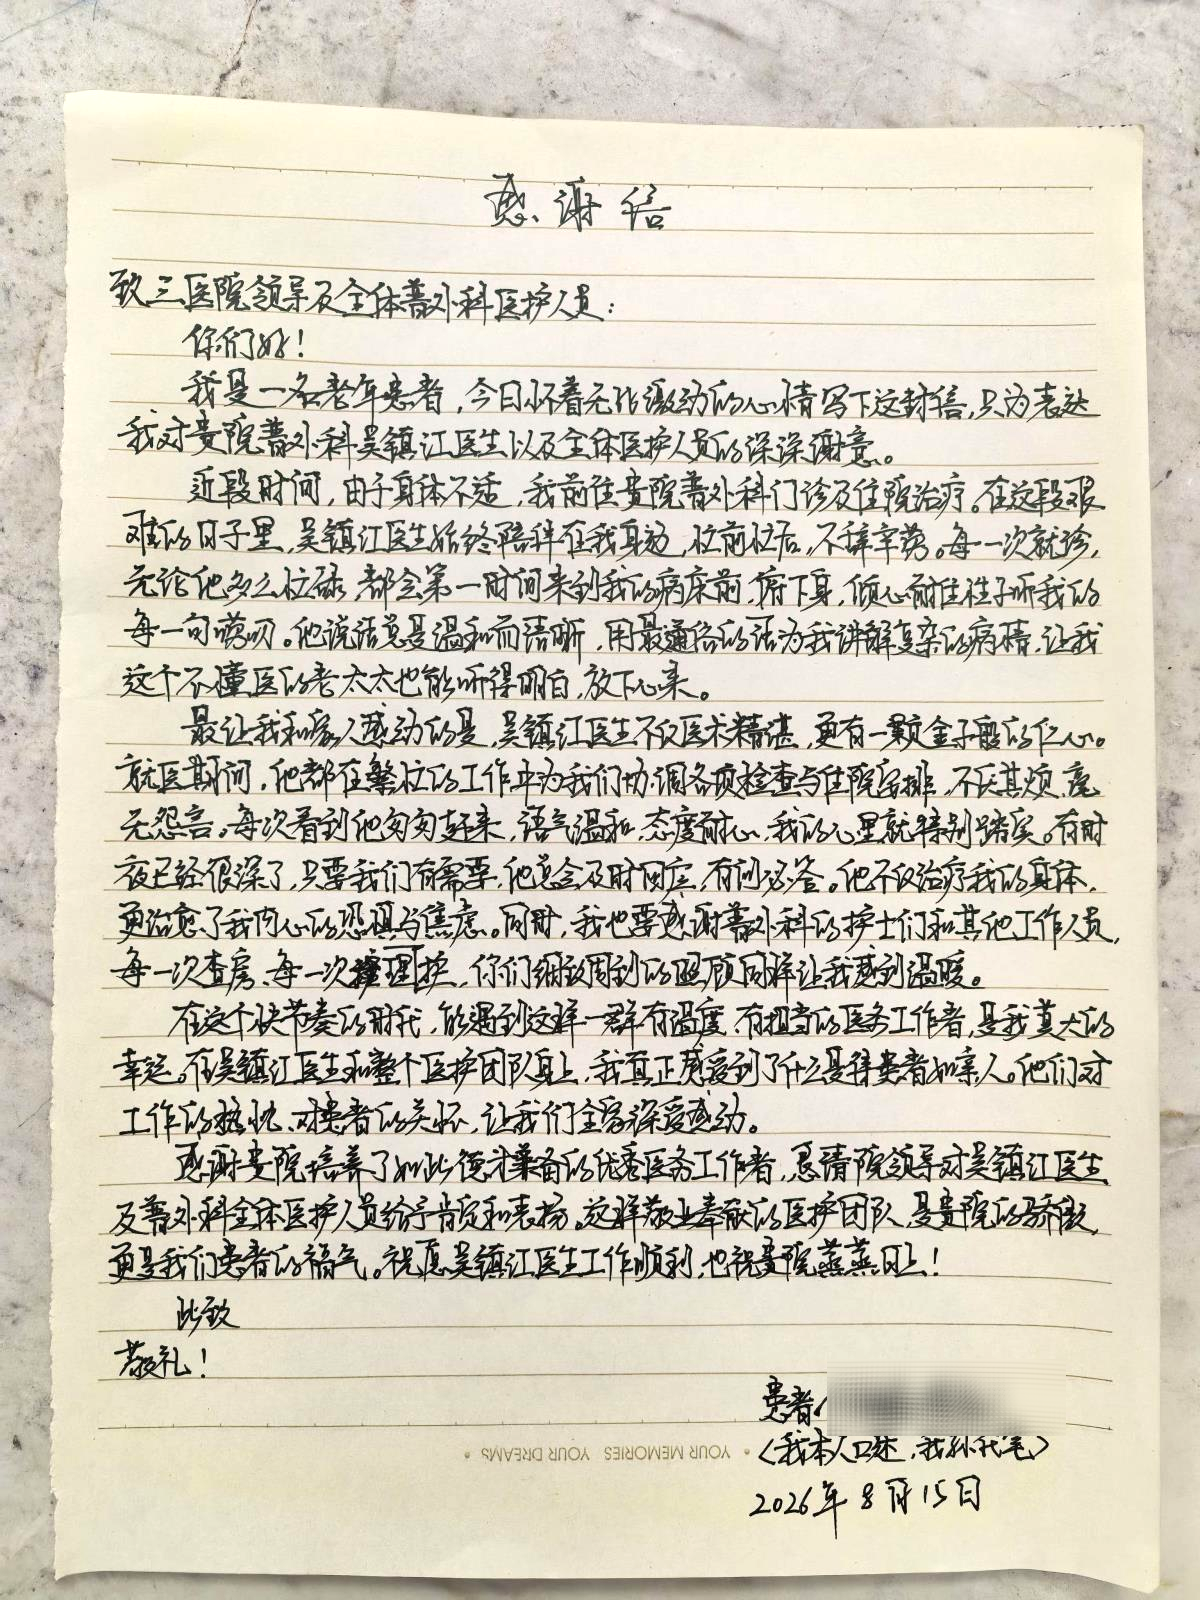 感谢信
致三医院领导及全体普外科医护人员：
你们好！
我是一名老年患者，今日怀着无比激动的心情写下这封信，只为表达
我对贵院普外科吴镇江医生以及全体医护人员的深深谢意。
近段时间，由于身体不适，我前往贵院普外科门诊及住院治疗。在这段艰
难的日子里，吴镇江医生始终陪伴在我身边，忙前忙后，不辞辛劳。每一次就诊，
无论他多么忙碌，都会第一时间来到我的病床前，俯下身，倾心耐住性子听我的
每一句唠叨。他说话总是温和而清晰，用最通俗的话为我讲解复杂的病情，让我
这个不懂医的老太太也能听得明白，放下心来。
最让我和家人感动的是，吴镇江医生不仅医术精湛，更有一颗金子般的仁心。
就医期间，他都在繁忙的工作中为我们协调各项检查与住院安排，不厌其烦，毫
无怨言。每次看到他匆匆赶来，语气温和，态度耐心，我的心里就特别踏实。有时
夜已经很深了，只要我们有需要，他总会及时回应，有问必答。他不仅治疗我的身体，
更治愈了我内心的恐惧与焦虑。同时，我也要感谢普外科的护士们和其他工作人员，
每一次查房、每一次护理，你们细致周到的照顾同样让我感到温暖。
在这个快节奏的时代，能遇到这样一群有温度、有担当的医务工作者，是我莫大的
幸运。在吴镇江医生和整个医护团队身上，我真正感受到了什么是待患者如亲人。他们对
工作的热忱、对患者的关怀，让我们全家深受感动。
感谢贵院培养了如此德才兼备的优秀医务工作者，恳请院领导对吴镇江医生
及普外科全体医护人员给予肯定和表扬。这样敬业奉献的医护团队，是贵院的骄傲，
更是我们患者的福气。祝愿吴镇江医生工作顺利，也祝贵院蒸蒸日上！
此致
敬礼！
患者：
（我本人口述，我孙代笔）
• YOUR MEMORIES YOUR DREAMS •
2026年8月15日